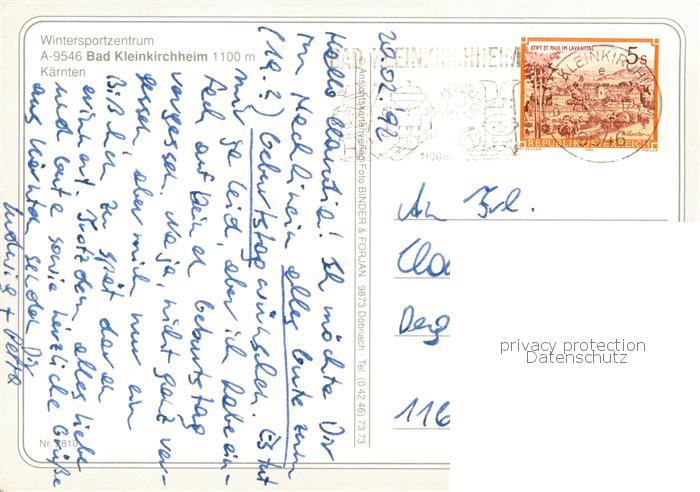 Wintersportzentrum
A-9546 Bad Kleinkirchheim 1100 m
Kärnten
BAD KLEINKIRCHHEIM
1100m
KLEINKIRCHH
STIFT ST. PAUL IM LAVANTTAL
5s
REPUBLIK ÖSTERREICH
20.02.'92
Hallo Claudia! Ich möchte Dir
im Nachhinein alles Gute zum
(19.?) Geburtstag wünschen. Es tut
mir so leid, aber ich habe ein-
fach auf Deinen Geburtstag
vergessen. Na ja, nicht ganz ver-
gessen, aber mich nur ein
Bißchen zu spät daran
erinnert. Trotzdem, alles Liebe
und Gute sowie herzliche Grüße
aus Kärnten senden Dir
Ludwig + Petra
© Ansichtskartenverlag Foto BINDER & FORJAN 9873 Döbriach Tel. (0 42 46) 73 73
An Frl.
Cla
116
privacy protection
Datenschutz